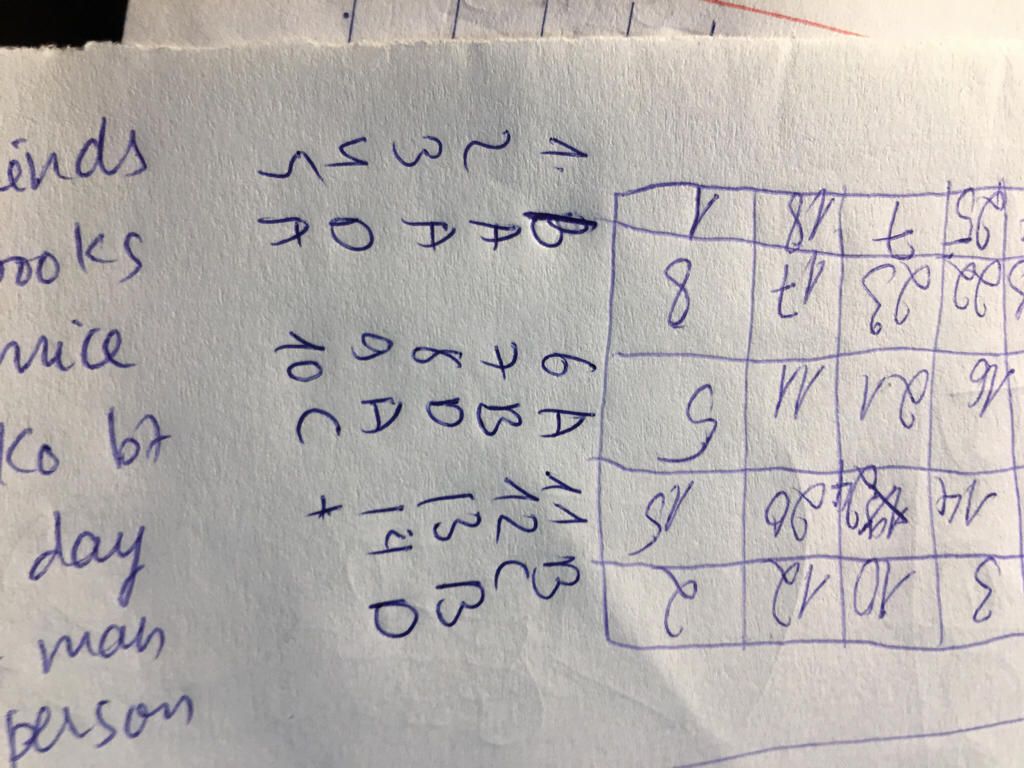 ends
ooks
nice
ko b7
day
man
person
1. B 6 A 11 B
2 A 7 B 12 C
3 A 8 D 13 B
4 D 9 A 14 D
5 A 10 C +
1 18 7 25
8 17 23 22
5 11 21 16
15 20 14
2 12 10 3